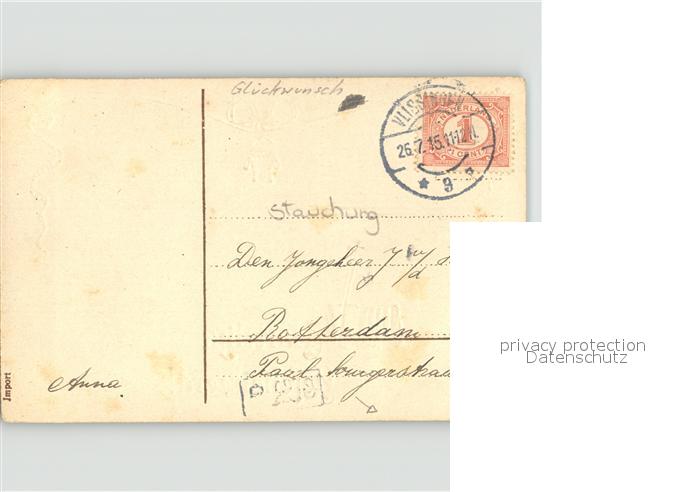 Glückwunsch
VLISSINGEN
26.7.15.11-12
9
NEDERLAND
1
CENT
Stauchung
Den Jongeheer J v/d
Rotterdam
Paul
Anna
Import
privacy protection
Datenschutz